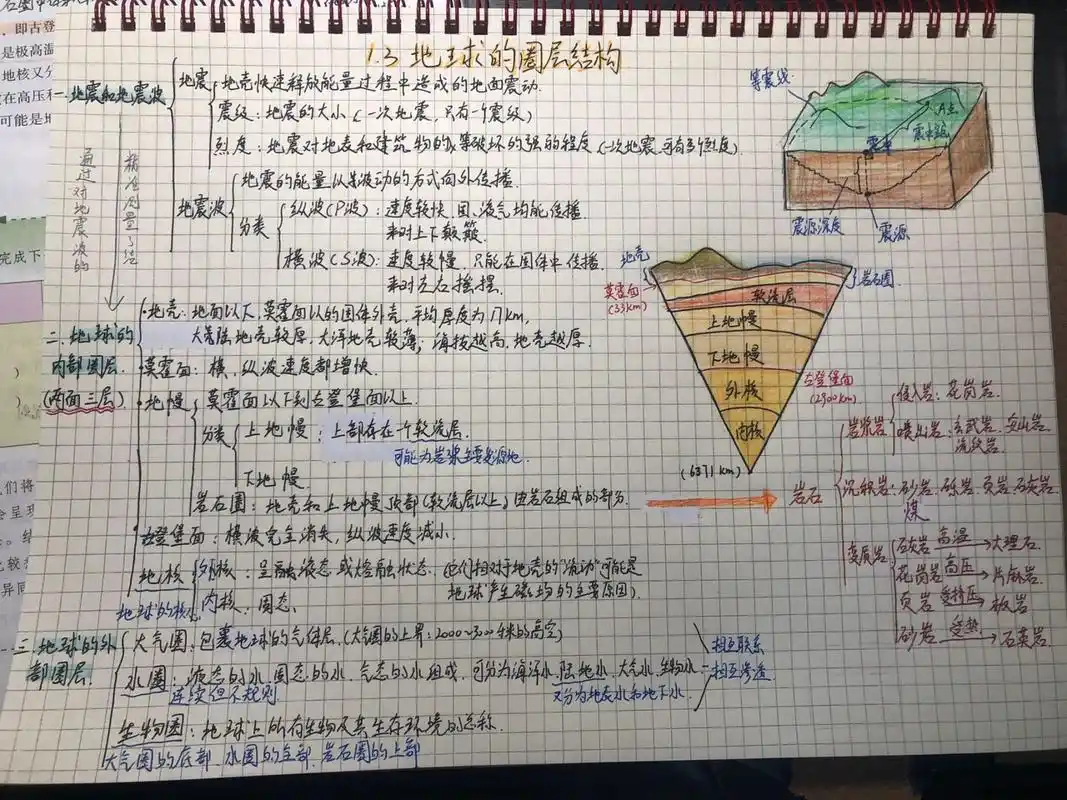 即古登
是极高温
地核又分
在高压和
可能是地
1.3 地球的圈层结构
一.地震和地震波
地震
地壳快速释放能量过程中造成的地面震动.
震级:地震的大小(一次地震,只有一个震级)
烈度:地震对地表和建筑物的等破坏的强的程度(一次地震可有多个烈度).
地震波
地震的能量以波动的方式向外传播.
分类
纵波(P波):速度较快 固、液气均能传播.
来时上下颠簸.
横波(S波):速度较慢,只能在固体中传播.
来时左右摇摆.
通过对地震波的
二.地球的内部圈层.
(两面三层)
地壳:地面以下,莫霍面以的固体外壳,平均厚度为17km,
大陆地壳较厚,大洋地壳较薄;海拔越高,地壳越厚.
莫霍面:横、纵波速度都增快.
地幔
莫霍面以下到古登堡面以上.
分类
上地幔:上部存在一个软流层.
可能为岩浆主要发源地.
下地幔.
岩石圈:地壳和上地幔顶部(软流层以上),由岩石组成的部分.
古登堡面:横波完全消失,纵波速度减小.
地核
地球的核心
外核:呈融液态或熔融状态.(他们相对于地壳的"流动"可能是
地球产生磁场的主要原因).
内核:固态、
三.地球的外部圈层.
大气圈:包裹地球的气体层.(大气圈的上界:2000~3000千米的高空)
水圈:液态的水、固态的水、气态的水组成,可分为海洋水.陆地水、大气水、生物水
连续但不规则.
又分为地表水和地下水.
生物圈:地球上所有生物及其生存环境的总称.
大气圈的底部、水圈的全部、岩石圈的上部
相互联系
相互渗透.
等震线
A点
震中距
震中
震源深度
震源
地壳
莫霍面
(33km)
岩石圈
软流层
上地幔
下地幔
外核
内核
古登堡面
(2900km)
(6371km)
岩石
岩浆岩
侵入岩:花岗岩.
喷出岩:玄武岩、安山岩.
流纹岩.
沉积岩:砂岩、砾岩、页岩、石灰岩.
煤
变质岩
石灰岩 高温 大理石.
花岗岩 高压 片麻岩.
页岩 受挤压 板岩
砂岩 受热 石英岩.
完成下
们将
会呈现